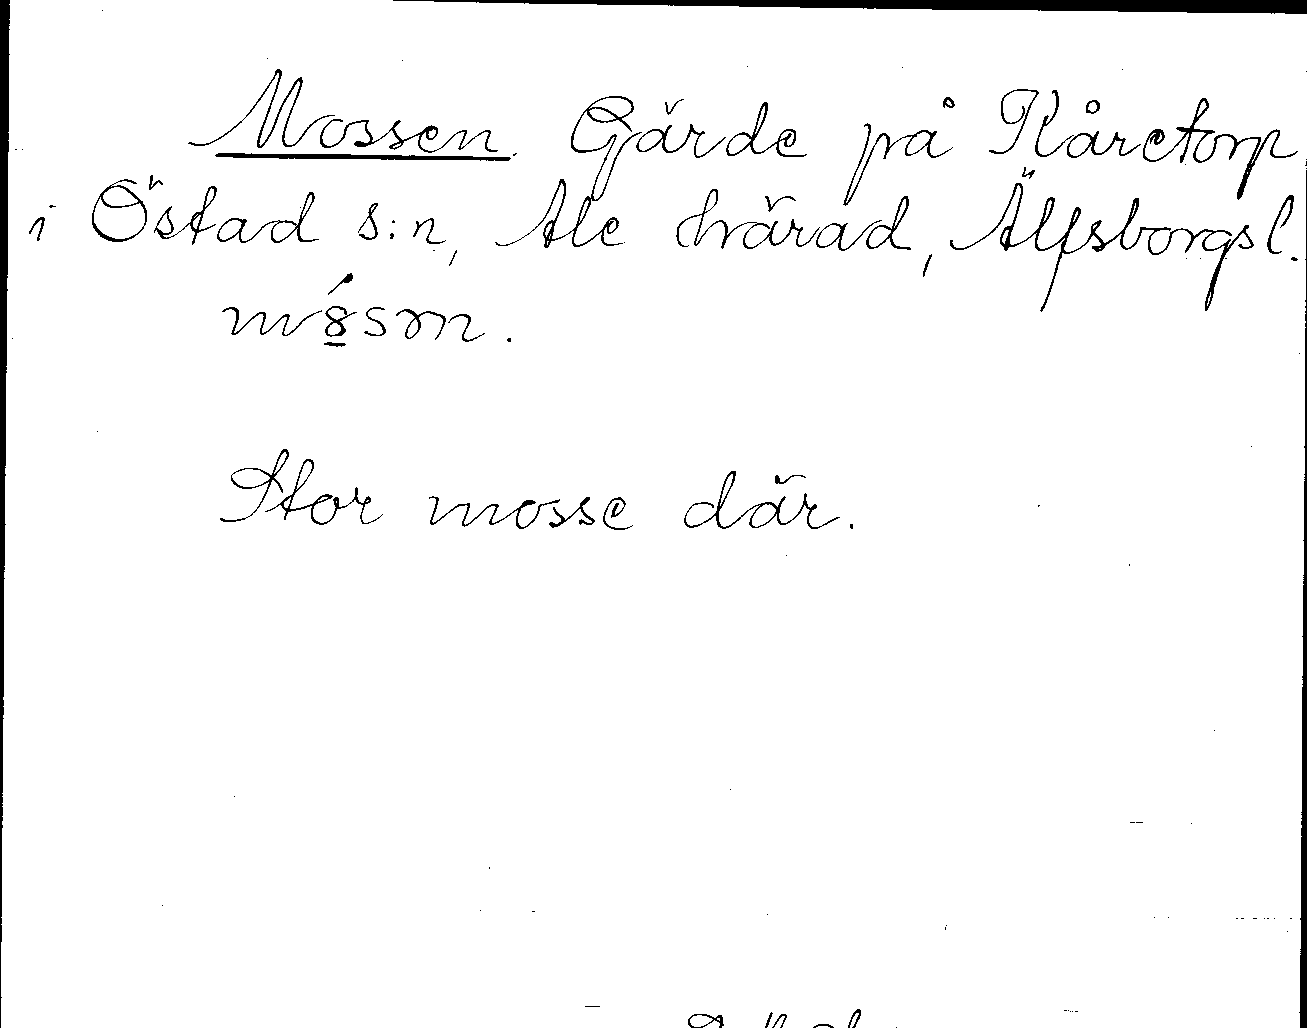 Mossen. Gärde på Kåretorp
i Östad s:n, Ale härad, Älfsborgs l.
mó̱sɔn.
Stor mosse där.